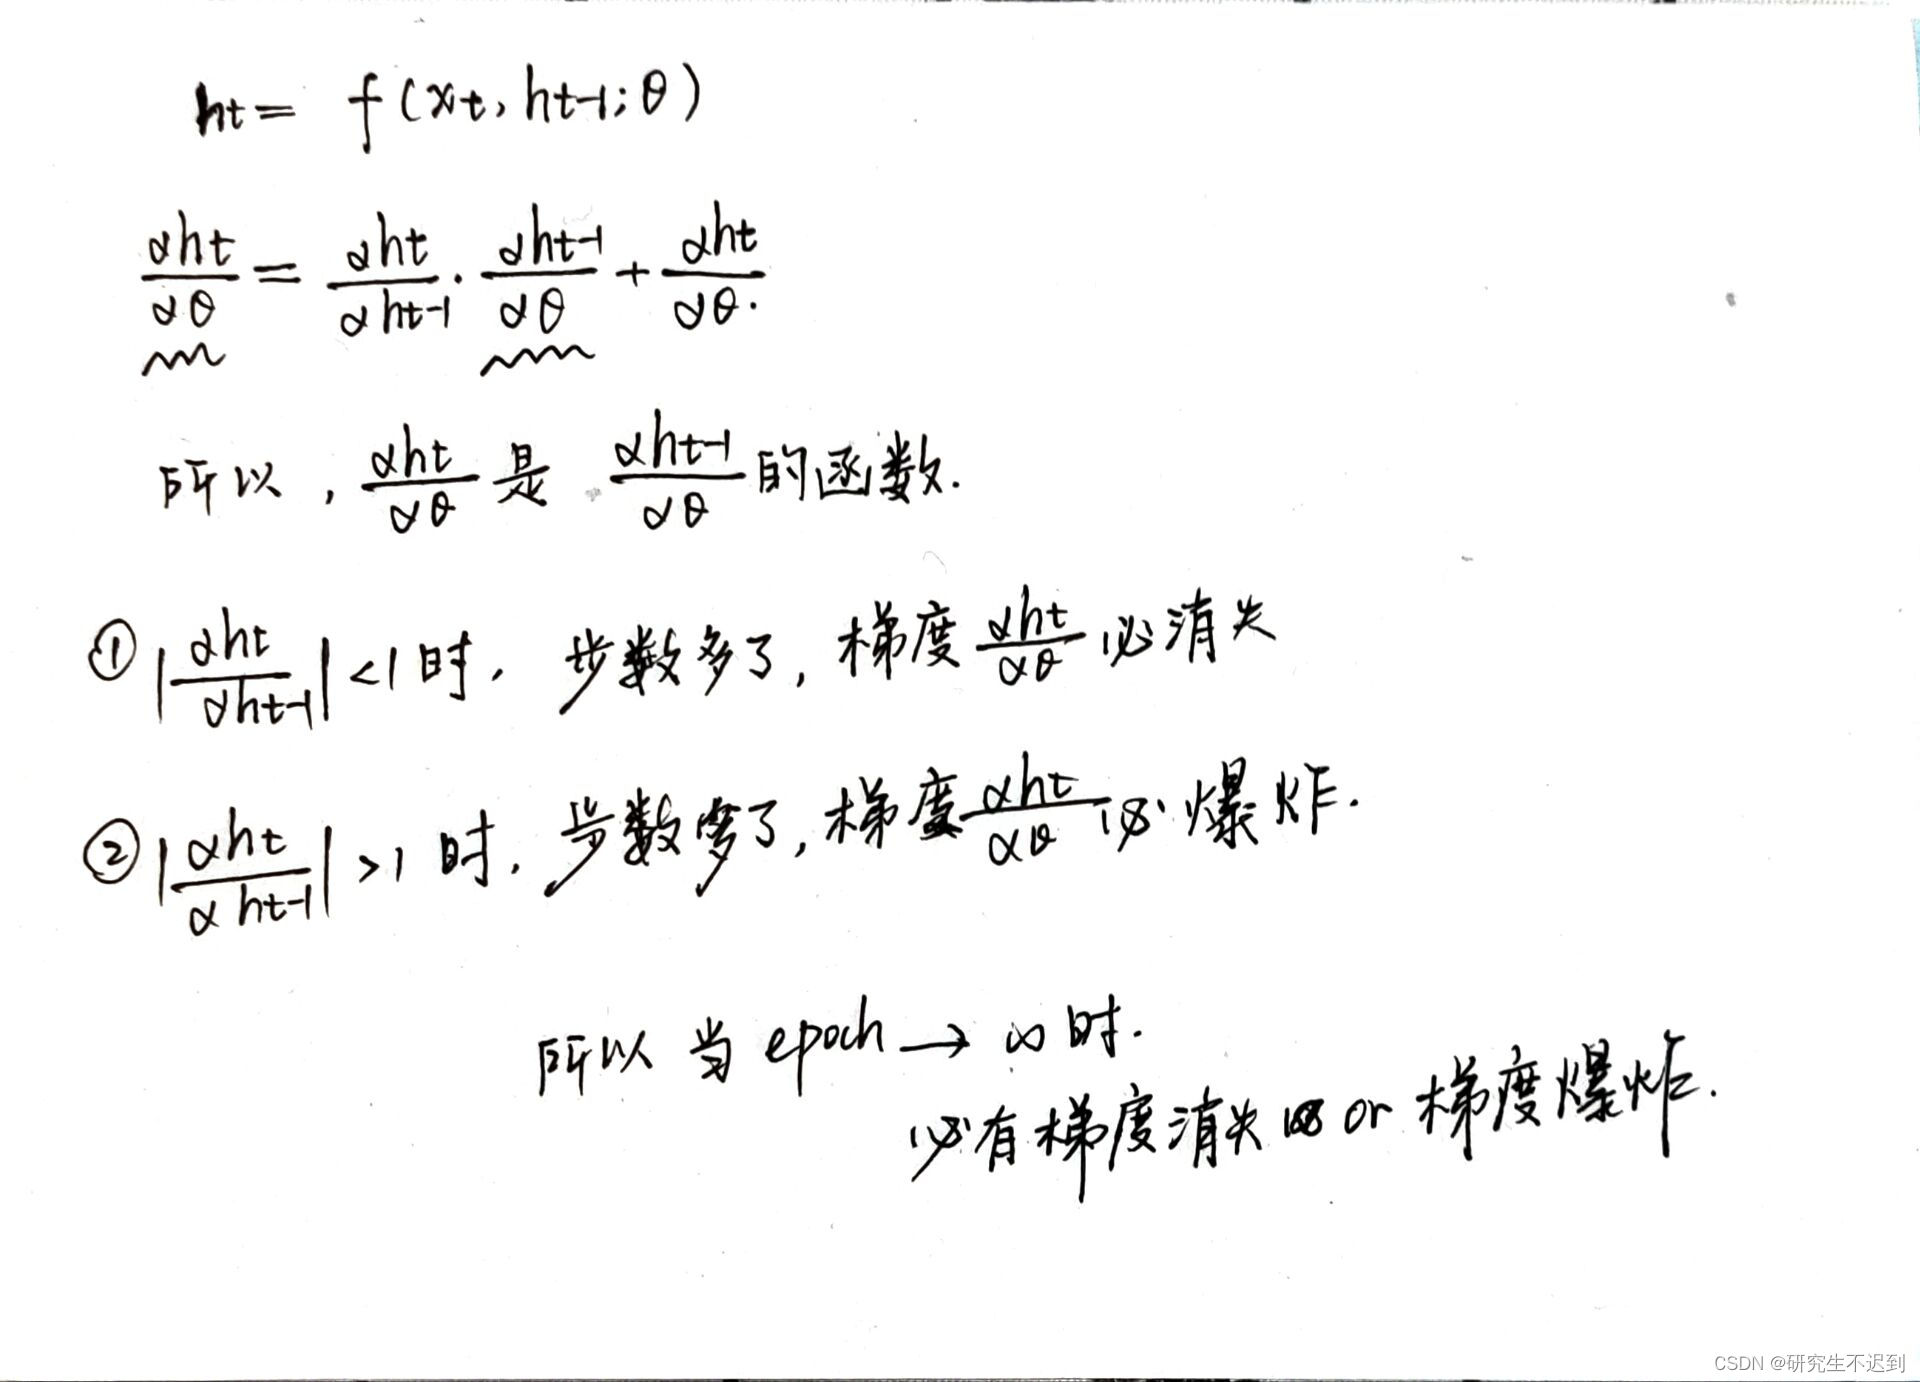 ht = f(xt, ht-1; θ)
αht/αθ = αht/αht-1 · αht-1/αθ + αht/αθ.
所以, αht/αθ 是 αht-1/αθ 的函数.
① |αht/αht-1| <1 时, 步数多了, 梯度 αht/αθ 必消失
② |αht/αht-1| >1 时, 步数多了, 梯度 αht/αθ 必爆炸.
所以 当 epoch → ∞ 时.
必有梯度消失 or 梯度爆炸.
CSDN @研究生不迟到